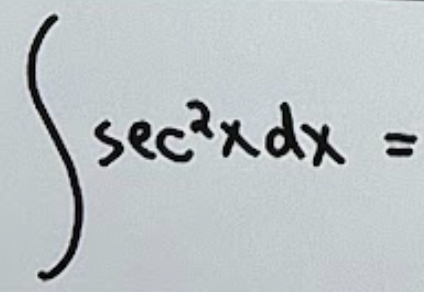 ∫ sec²x dx =